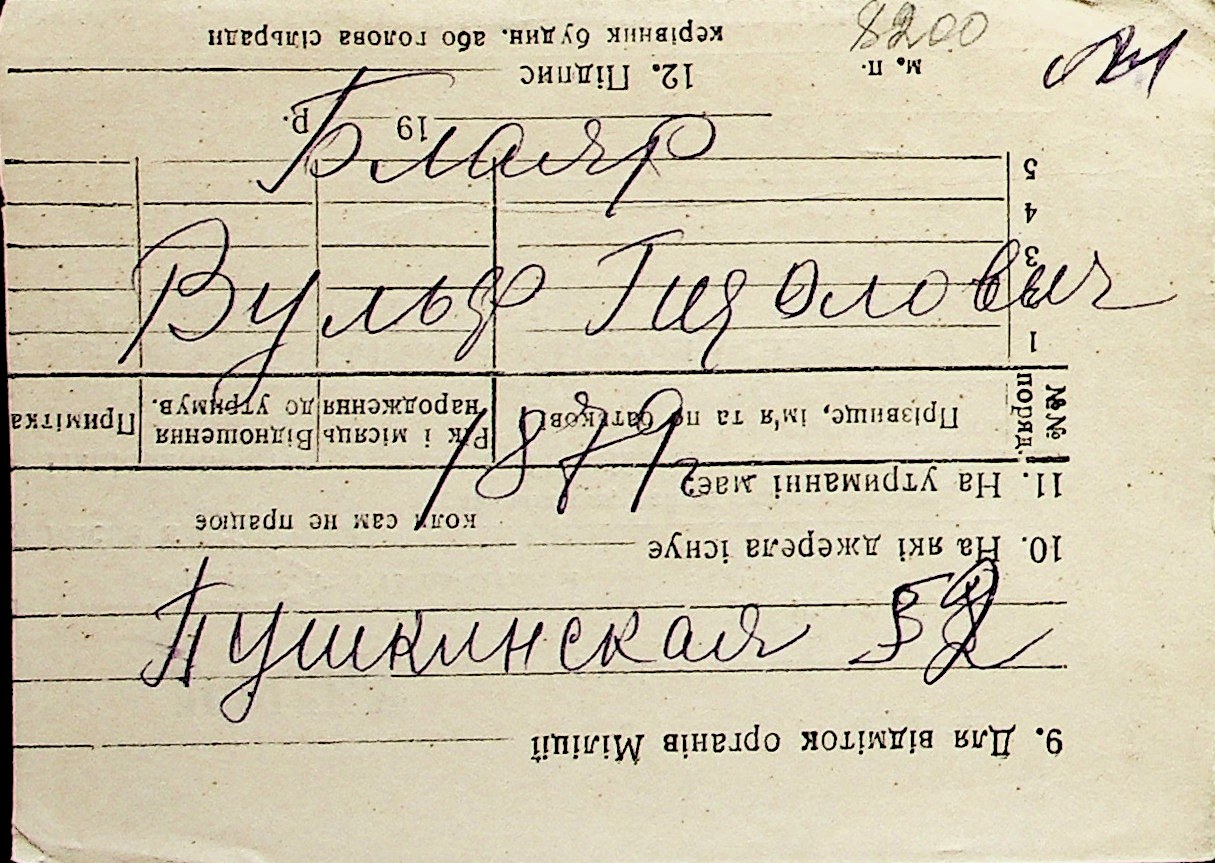 8200
Вульф Гидолович
1879г
Пушкинская 52
9. Для відміток органів Міліції
10. На які джерела існує
коли сам не працює
11. На утриманні має:
№№ поряд. Прізвище, ім'я та по батькові Рік і місяць народження Відношення до утримув. Примітка
1
2
3
4
5
19 р.
12. Підпис
м. п. керівник будин. або голова сільради